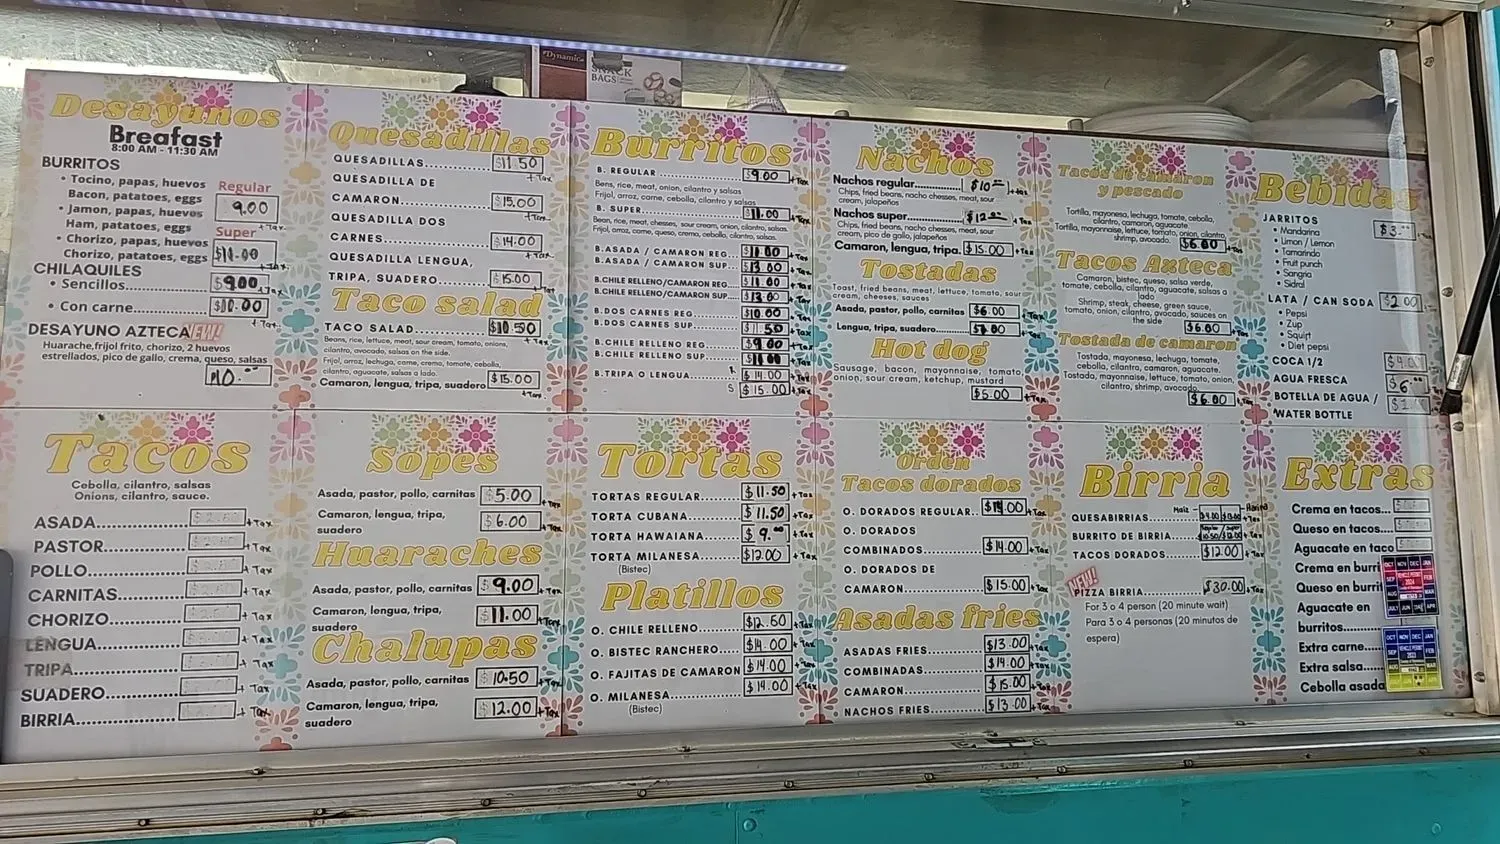 Dynamic
SNACK
BAGS
Desayunos
Breafast
8:00 AM - 11:30 AM
BURRITOS
• Tocino, papas, huevos
Bacon, patatoes, eggs
• Jamon, papas, huevos
Ham, patatoes, eggs
• Chorizo, papas, huevos
Chorizo, patatoes, eggs
Regular
9.00
+ Tax
Super
$11.00
+ Tax
CHILAQUILES
• Sencillos............ $9.00 + Tax
• Con carne.......... $10.00
+ Tax
DESAYUNO AZTECA NEW!
Huarache,frijol frito, chorizo, 2 huevos
estrellados, pico de gallo, crema, queso, salsas
10.00
Quesadillas
QUESADILLAS.......... $11.50
+ Tax
QUESADILLA DE
CAMARON.......... $15.00
+ Tax
QUESADILLA DOS
CARNES.......... $14.00
+ Tax
QUESADILLA LENGUA,
TRIPA, SUADERO.......... $15.00
+ Tax
Taco salad
TACO SALAD.......... $10.50
+ Tax
Beans, rice, lettuce, meat, sour cream, tomato, onions,
cilantro, avocado, salsas on the side.
Frijol, arroz, lechuga, carne, crema, tomate, cebolla,
cilantro, aguacate, salsas a lado.
Camaron, lengua, tripa, suadero $15.00
+ Tax
Burritos
B. REGULAR .......... $9.00 + Tax
Bens, rice, meat, onion, cilantro y salsas
Frijol, arroz, carne, cebolla, cilantro y salsas
B. SUPER.......... $11.00 + Tax
Bean, rice, meat, chesses, sour cream, onion, cilantro, salsas.
Frijol, arroz, carne, queso, crema, cebolla, cilantro, salsas.
B.ASADA / CAMARON REG... $11.00 + Tax
B.ASADA / CAMARON SUP... $13.00 + Tax
B.CHILE RELLENO/CAMARON REG... $11.00 + Tax
B.CHILE RELLENO/CAMARON SUP.... $13.00 + Tax
B.DOS CARNES REG.......... $10.00 + Tax
B.DOS CARNES SUP.......... $11.50 + Tax
B.CHILE RELLENO REG.......... $9.00 + Tax
B.CHILE RELLENO SUP.......... $11.00 + Tax
B.TRIPA O LENGUA.......... R $14.00 + Tax
S $15.00 + Tax
Nachos
Nachos regular.......... $10.00 + tax
Chips, fried beans, nacho chesses, meat, sour
cream, jalapeños
Nachos super.......... $12.00 + Tax
Chips, fried beans, nacho chesses, meat, sour
cream, pico de gallo, jalapeños
Camaron, lengua, tripa. $15.00 + Tax
Tostadas
Toast, fried beans, meat, lettuce, tomato, sour
cream, cheeses, sauces
Asada, pastor, pollo, carnitas $6.00 + Tax
Lengua, tripa, suadero.......... + Tax
Hot dog
Sausage, bacon, mayonnaise, tomato,
onion, sour cream, ketchup, mustard
$5.00 + Tax
Tacos de camaron
y pescado
Tortilla, mayonesa, lechuga, tomate, cebolla,
cilantro, camaron, aguacate.
Tortilla, mayonnaise, lettuce, tomato, onion, cilantro,
shrimp, avocado. $6.00 + Tax
Tacos Azteca
Camaron, bistec, queso, salsa verde,
tomate, cebolla, cilantro, aguacate, salsas a
lado
Shrimp, steak, cheese, green sauce
tomato, onion, cilantro, avocado, sauces on
the side
$6.00 + Tax
Tostada de camaron
Tostada, mayonesa, lechuga, tomate,
cebolla, cilantro, camaron, aguacate.
Tostada, mayonnaise, lettuce, tomato, onion,
cilantro, shrimp, avocado.
$6.00 + Tax
Bebidas
JARRITOS $3.
+ Tax
• Mandarina
• Limon / Lemon
• Tamarindo
• Fruit punch
• Sangria
• Sidral
LATA / CAN SODA $2.00
• Pepsi
• Zup
• Squirt
• Diet pepsi
COCA 1/2 $4.00
AGUA FRESCA $6.00
BOTELLA DE AGUA /
WATER BOTTLE
Tacos
Cebolla, cilantro, salsas
Onions, cilantro, sauce.
ASADA.......... + Tax
PASTOR.......... + Tax
POLLO.......... + Tax
CARNITAS.......... + Tax
CHORIZO.......... + Tax
LENGUA.......... + Tax
TRIPA.......... + Tax
SUADERO.......... + Tax
BIRRIA.......... + Tax
Sopes
Asada, pastor, pollo, carnitas $5.00 + Tax
Camaron, lengua, tripa,
suadero $6.00 + Tax
Huaraches
Asada, pastor, pollo, carnitas $9.00 + Tax
Camaron, lengua, tripa,
suadero $11.00 + Tax
Chalupas
Asada, pastor, pollo, carnitas $10.50 + Tax
Camaron, lengua, tripa,
suadero $12.00 + Tax
Tortas
TORTAS REGULAR.......... $11.50 + Tax
TORTA CUBANA.......... $11.50 + Tax
TORTA HAWAIANA.......... $9.00 + Tax
TORTA MILANESA.......... $12.00 + Tax
(Bistec)
Platillos
O. CHILE RELLENO.......... $12.50 + Tax
O. BISTEC RANCHERO... $14.00 + Tax
O. FAJITAS DE CAMARON $14.00 + Tax
O. MILANESA.......... $14.00 + Tax
(Bistec)
Orden
Tacos dorados
O. DORADOS REGULAR.. .00 + Tax
O. DORADOS
COMBINADOS.......... $14.00 + Tax
O. DORADOS DE
CAMARON.......... $15.00 + Tax
Asadas fries
ASADAS FRIES.......... $13.00 + Tax
COMBINADAS.......... $14.00 + Tax
CAMARON.......... $15.00 + Tax
NACHOS FRIES.......... $13.00 + Tax
Birria
Maiz Harina
QUESABIRRIAS.......... $4.00 $13.00 + Tax
Regular Super
BURRITO DE BIRRIA... 10.50 $12.00 + Tax
TACOS DORADOS.......... $12.00 + Tax
NEW!
PIZZA BIRRIA.......... $30.00 + Tax
For 3 o 4 person (20 minute wait)
Para 3 o 4 personas (20 minutos de
espera)
Extras
Crema en tacos...
Queso en tacos...
Aguacate en taco
Crema en burri
Queso en burri
Aguacate en
burritos..
Extra carne..
Extra salsa..
Cebolla asada